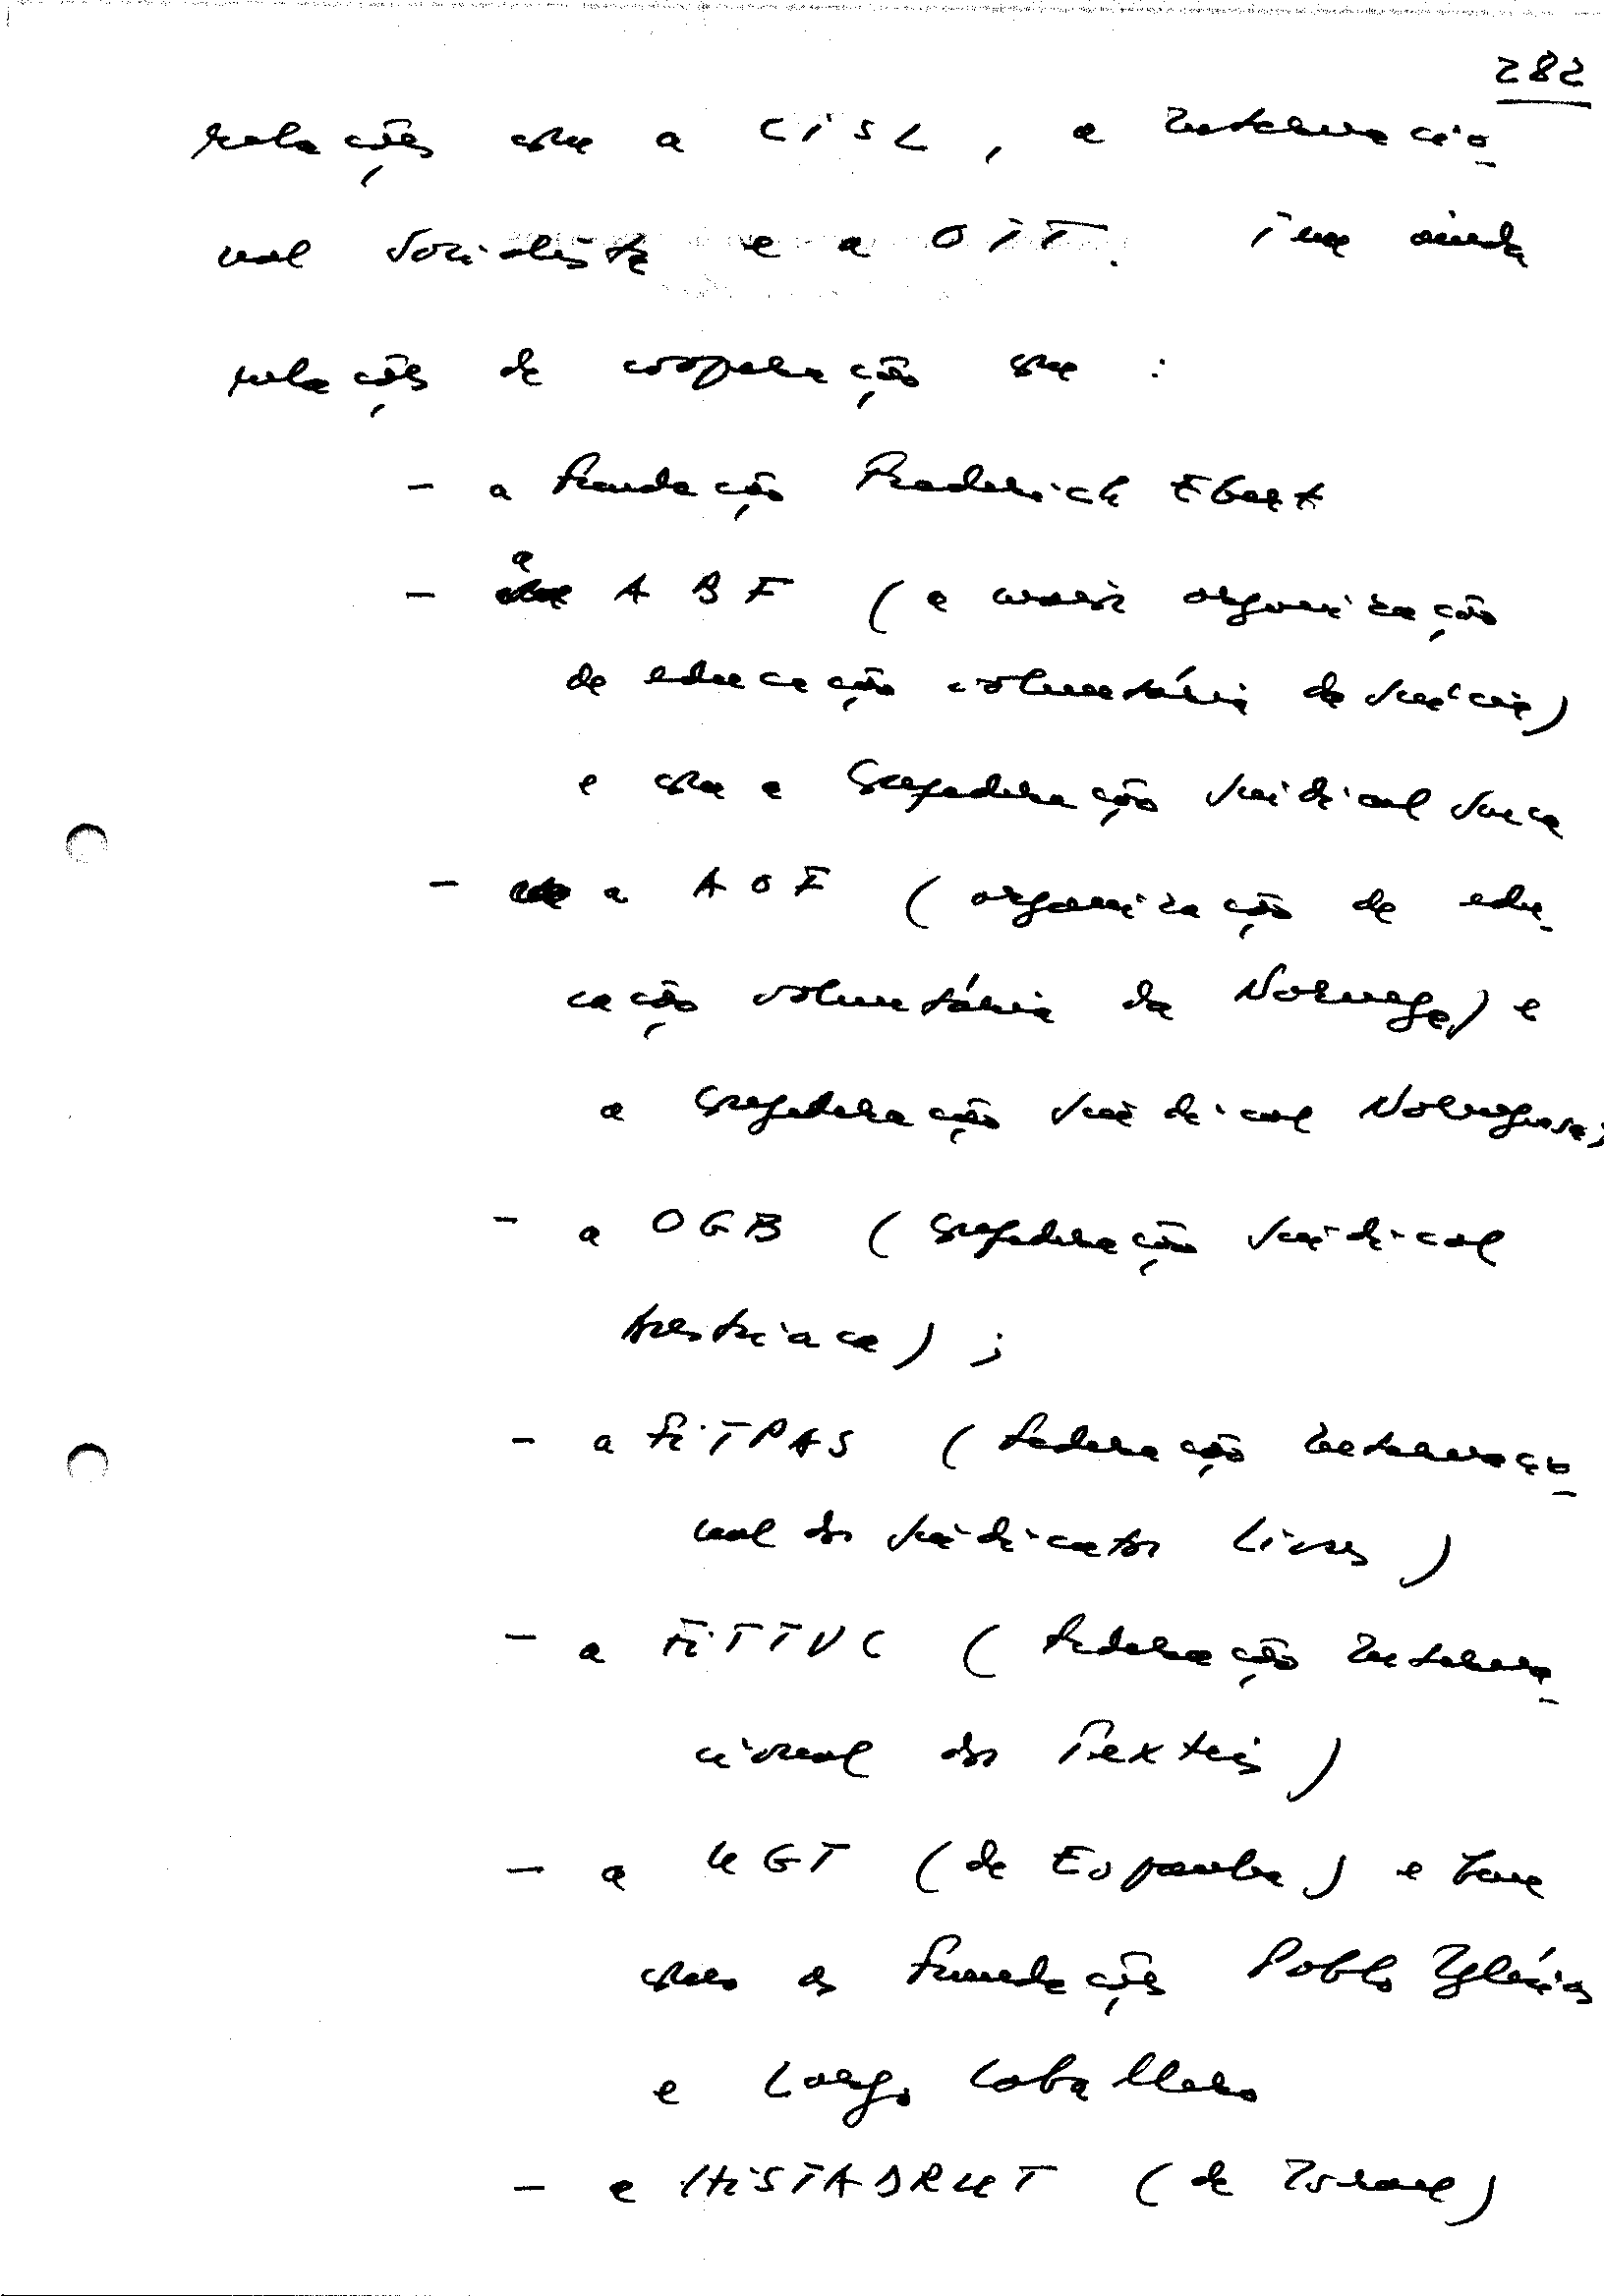 282
relações com a CISL, a Internacio-
nal Socialista e a OIT. Tem ainda
relações de cooperação com:
- a Fundação Frederich Ebert
- a ABF (a maior organização
de educação voluntária da Suécia)
e com a Confederação Sindical Sueca
- a AOF (organização de edu-
cação voluntária da Noruega) e
a Confederação Sindical Norueguesa;
- a OGB (Confederação Sindical
Austríaca);
- a FITPAS (Federação Internacio-
nal dos Sindicatos Livres)
- a FITTVC (Federação Interna-
cional dos Texteis)
- a UGT (de Espanha) e bem
como as Fundações Pablo Iglésias
e Largo Caballero
- a HISTADRUT (de Israel)